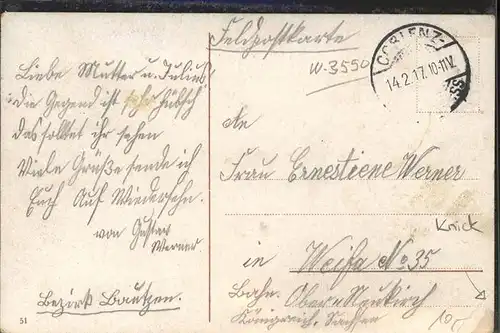 Feldpostkarte
W-3550
COBLENZ-
14.2.17.10-11V.
Liebe Mutter u. Julius!
die Gegend ist sehr hübsch
das solltet ihr sehen
Viele Grüße sende ich
Euch Auf Wiedersehn.
von Gustav
Werner.
Bezirk Bautzen.
51
An
Frau Ernestiene Werner
in Weifa No 35
Knick
Bahn. Ober Neukirch
Königreich. Sachsen